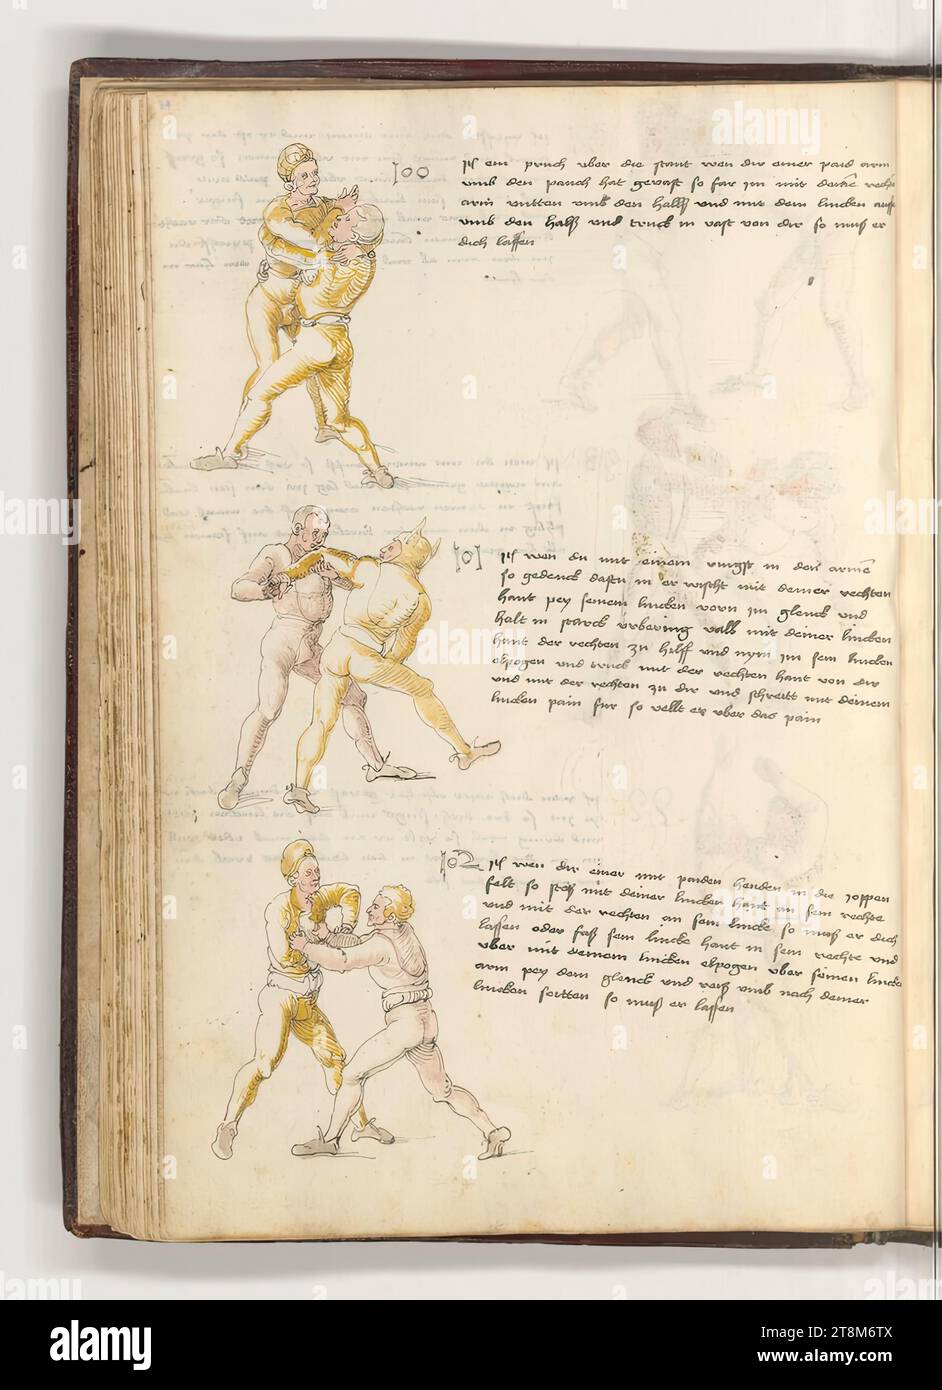 100
Jtẽ ein pruch vber die stant wen dir einer paid arm
vmb den pauch hat gevast so far jm mit deinẽ rechtẽ
arm vntten vmb den halß vnd mit dem lincken auff
vmb den halß vnd truck in vast von dir so muß er
dich lassen
101
Jtẽ wen du mit einem ringst in den armẽ
so gedenck dastu in er wischt mit deiner rechten
hant pey seinem lincken vorn im glenck vnd
halt in starck vrbering vall mit deiner lincken
hant der rechten zu hilff vnd nym im sein lincken
elpogen vnd truck mit der rechten hant von dir
vnd mit der rechten zu dir vnd schreitt mit deinem
lincken pain fur so vellt er vber das pain
102
Jtẽ wen dir einer mit paiden henden in die joppen
felt so stoß mit deiner lincken hant an sein rechte
vnd mit der rechten an sein lincke so muß er dich
lassen oder faß sein lincke hant in sein rechte vnd
vber mit deinem lincken elpogen vber seinen lincken
arm pey dem glenck vnd reiß vmb nach deiner
lincken seitten so muß er lassen
alamy
Image ID: 2T8M6TX
www.alamy.com